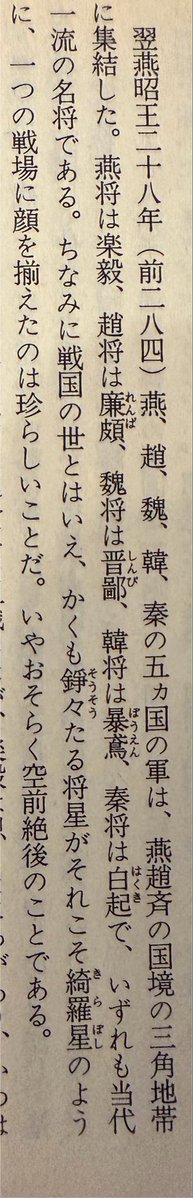 翌燕昭王二十八年（前二八四）燕、趙、魏、韓、秦の五ヵ国の軍は、燕趙斉の国境の三角地帯
に集結した。燕将は楽毅、趙将は廉頗、魏将は晋鄙、韓将は暴鳶、秦将は白起で、いずれも当代
一流の名将である。ちなみに戦国の世とはいえ、かくも錚々たる将星がそれこそ綺羅星のよう
に、一つの戦場に顔を揃えたのは珍らしいことだ。いやおそらく空前絶後のことである。